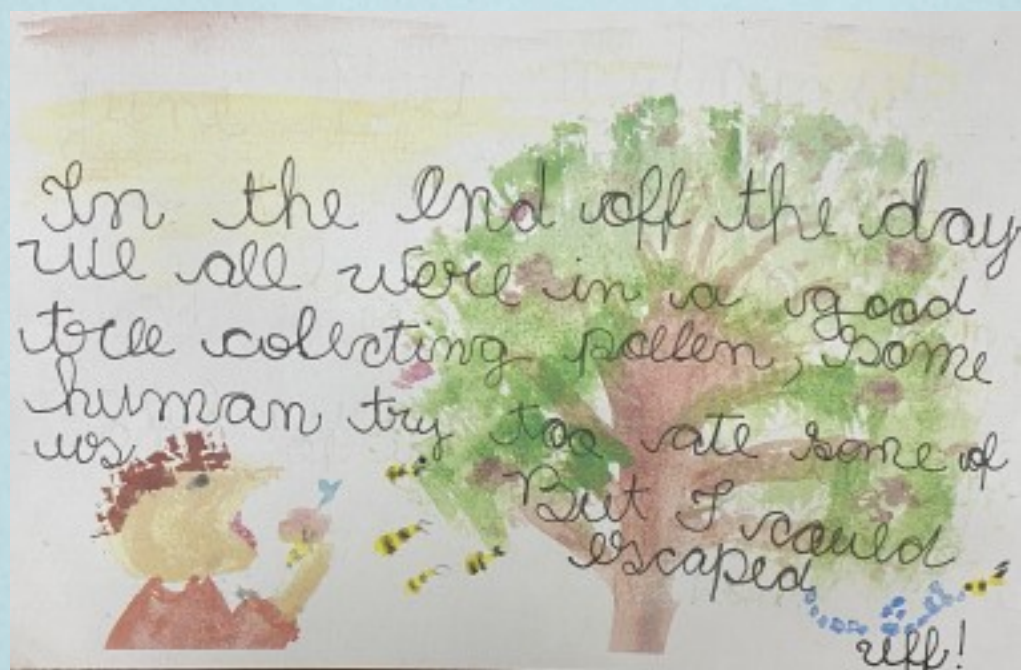 In the end off the day
we all were in a good
tree collecting pollen, some
human try too ate some of
us.
But I could
escaped
uff!